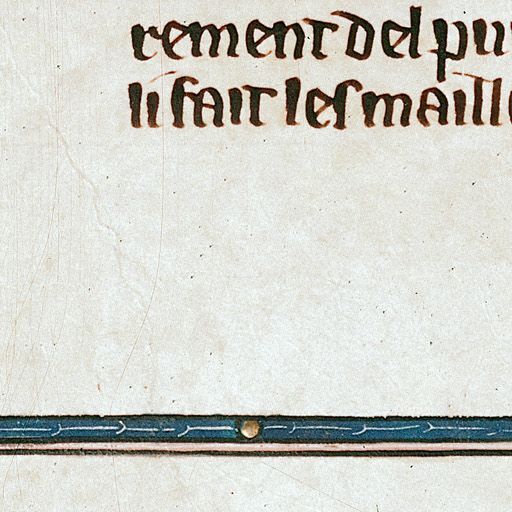 rement del pu
li fait les maill